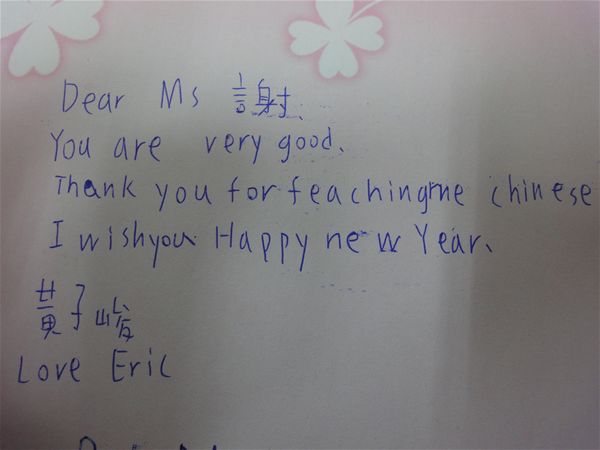 Dear Ms 謝.
You are very good.
Thank you for feaching me chinese
I wish you Happy new Year.
黃子
Love Eric